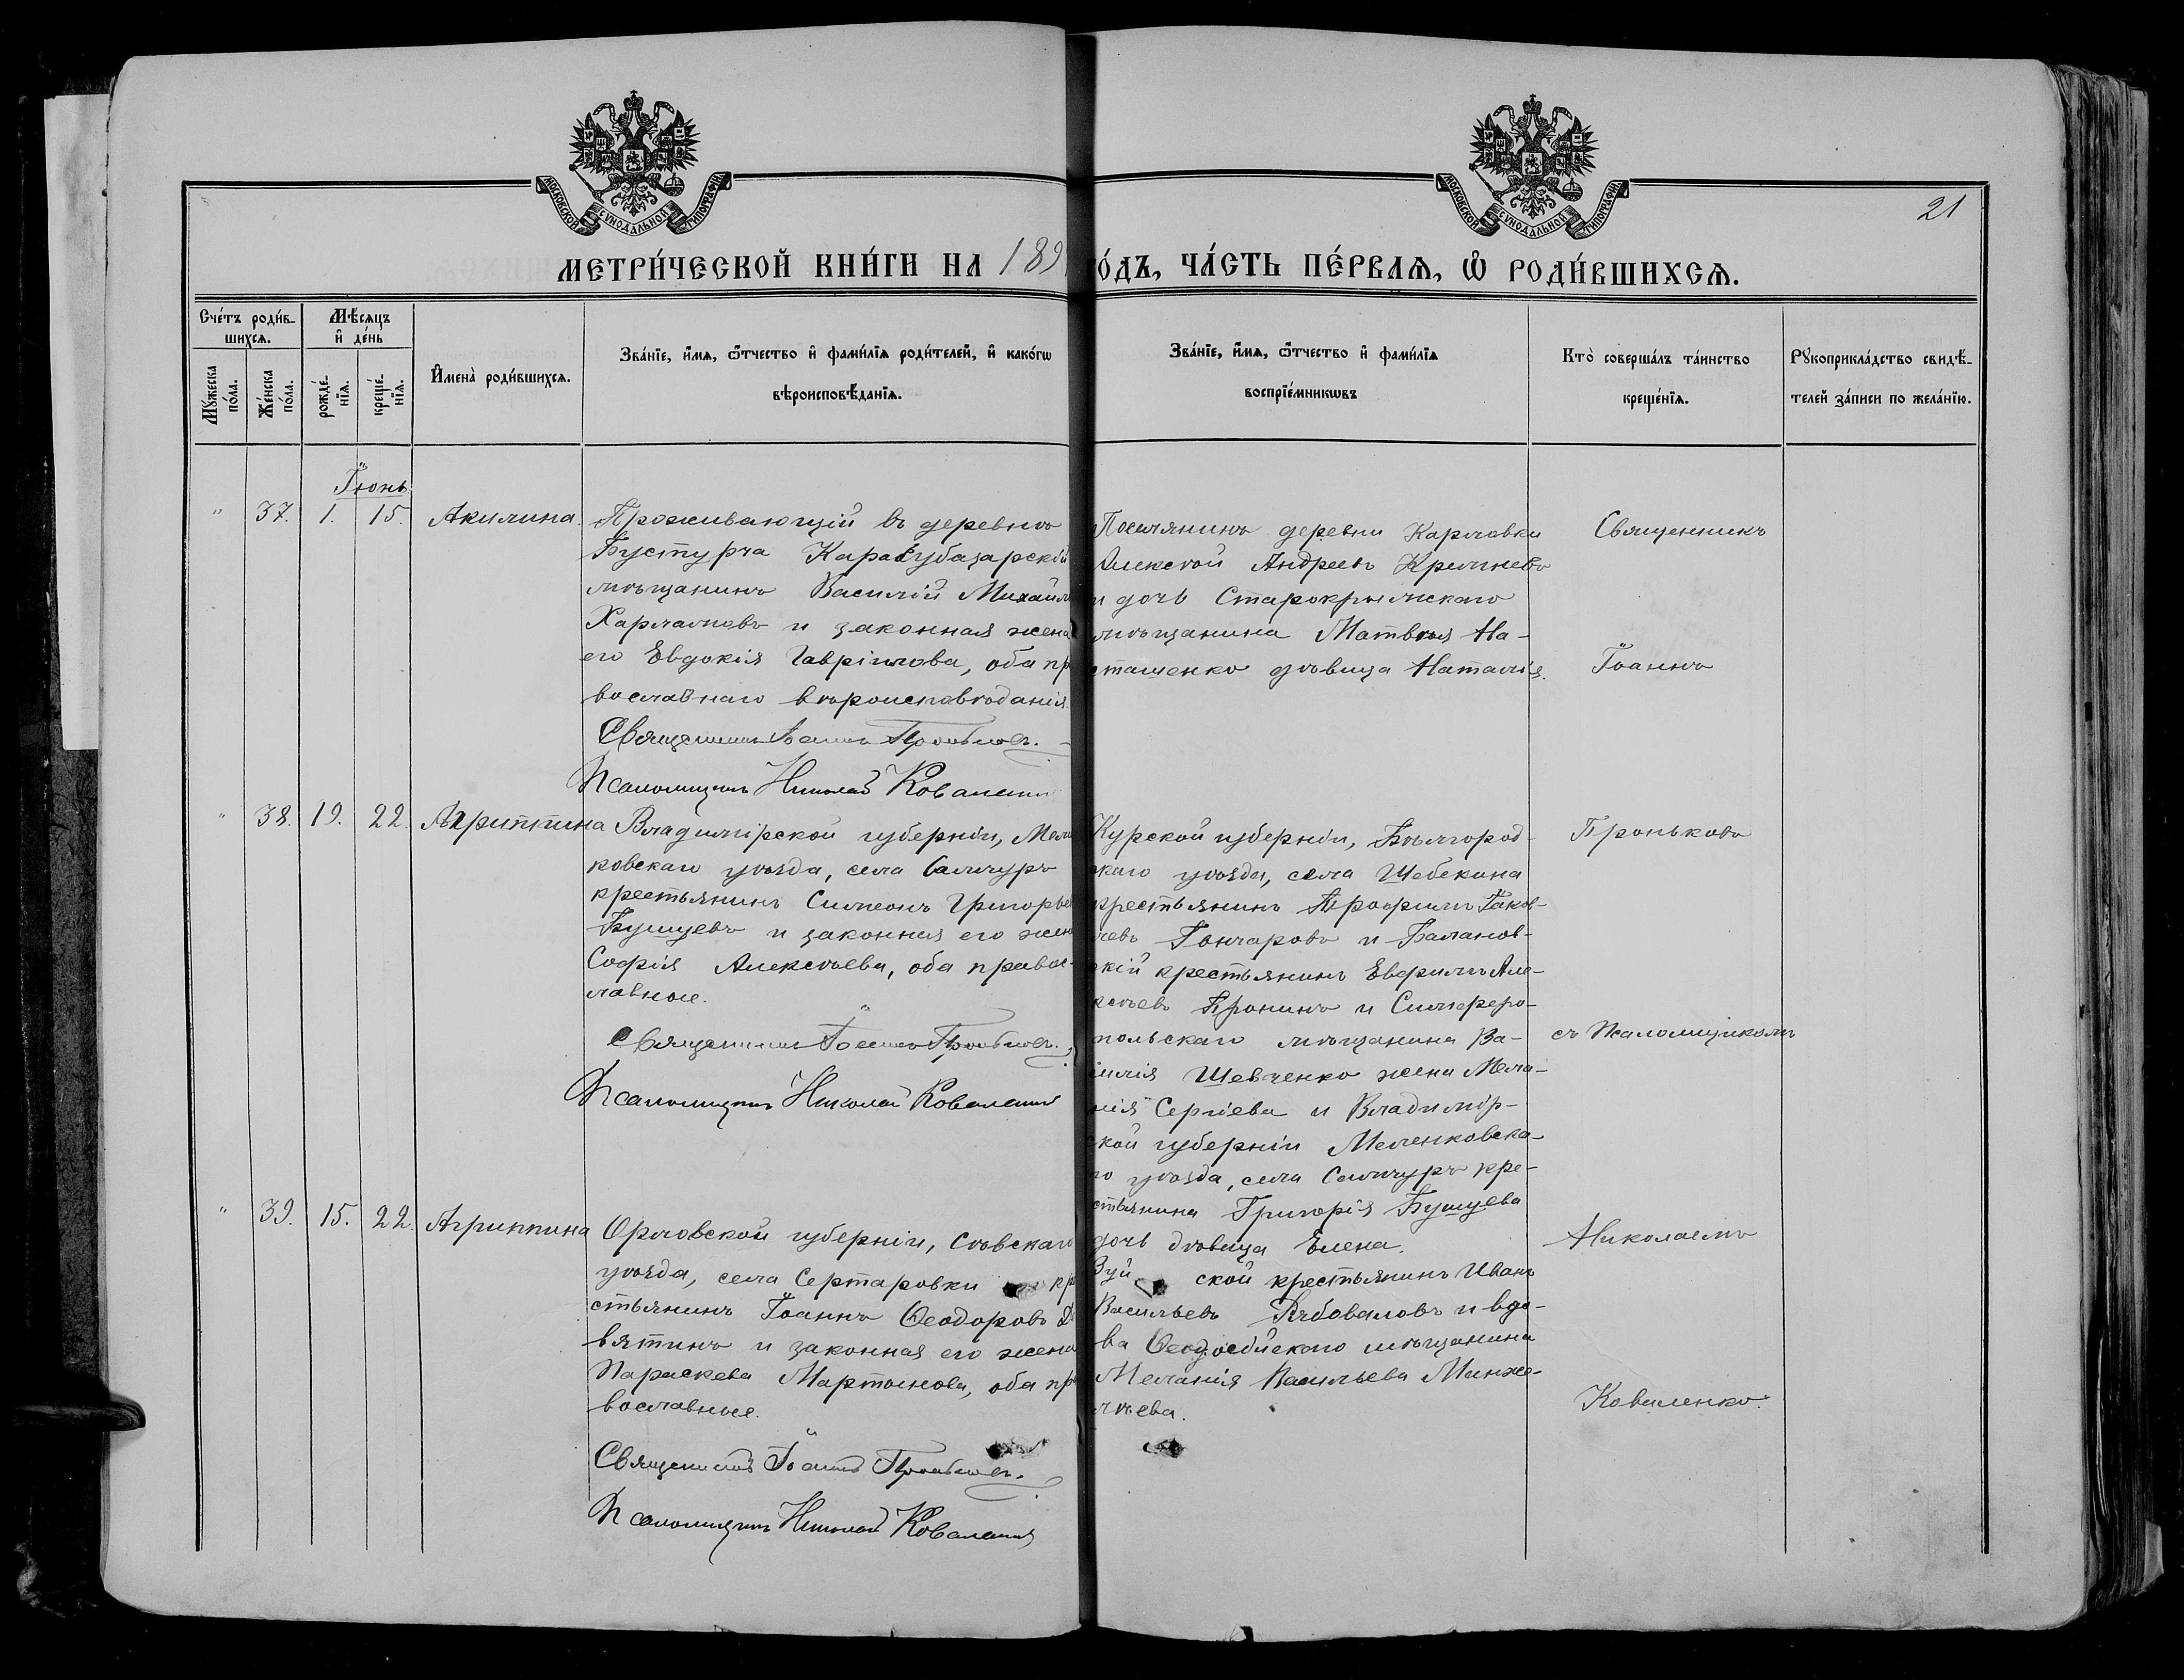 МОСКОВСКОЙ СѴНОДАЛЬНОЙ ТИПОГРАФІИ
МОСКОВСКОЙ СѴНОДАЛЬНОЙ ТИПОГРАФІИ
21
МЕТРИ́ЧЕСКОЙ КНИ́ГИ НА 189
О́ДЪ, ЧА́СТЬ ПЕ́РВАѦ, Ѿ РОДИ́ВШИХСѦ.
Сче́тъ роди́в-
шихсѧ.
Мѣ́сѧцъ
и҆ де́нь
Мꙋ́жеска
по́ла.
Же́нска
по́ла.
рожде́-
нїѧ.
креще́-
нїѧ.
И҆мена̀ роди́вшихсѧ.
Зва́нїе, и҆́мѧ, ѻ҆́тчество и҆ фамѵ́лїѧ роди́телей, и҆ како́гѡ
вѣроисповѣ́данїѧ.
Зва́нїе, и҆́мѧ, ѻ҆́тчество и҆ фами́лїѧ
воспрїе́мникѡвъ
Кто̀ соверша́лъ та́инство
креще́нїѧ.
Рꙋкоприкла́дство свидѣ́-
телей за́писи по жела́нїю.
Іюнь
" 37. 1. 15. Акилина.
Проживающій въ деревнѣ
Бустурча Карасубазарскій
мѣщанинъ Василій Михайл
Харламповъ и законная жена
его Евдокія Гавріилова, оба пр
вославнаго вѣроисповѣданія.
Священникъ Іоаннъ Проньковъ.
Псаломщикъ Николай Коваленко
Поселянинъ деревни Карловки
Алексѣй Андреевъ
и дочь Старокрымскаго
мѣщанина Матвѣя На-
сташенко дѣвица Наталія.
Священникъ
Іоаннъ
" 38. 19. 22. Агриппина
Владимірской губерніи, Меле
ковскаго уѣзда, села Салчуръ
крестьянинъ Симеонъ Григорье
Бушуевъ и законная его жен
Софія Алексѣева, оба правос-
лавные.
Священникъ Іоаннъ Проньковъ.
Псаломщикъ Николай Коваленко
Курской губерніи, Бѣлгород-
скаго уѣзда, села Шебекина
крестьянинъ Трофимъ Іаков-
левъ Гончаровъ и Баланов-
скій крестьянинъ Евфимъ Але-
ксѣевъ Пронинъ и Симферо-
польскаго мѣщанина Ва-
силія Шевченко жена Мела-
нія Сергіева и Владимір-
ской губерніи Меленковска-
го уѣзда, села Салчуръ кре-
стьянина Григорія Бушуева
дочь дѣвица Елена.
Проньковъ
съ Псаломщикомъ
" 39. 15. 22. Агриппина
Орловской губерніи, Сѣвскаго
уѣзда, села Сертаровки кр
стьянинъ Іоаннъ Ѳеодоровъ Д
вятинъ и законная его жена
Параскева Мартынова, оба пр
вославные.
Священникъ Іоаннъ Проньковъ.
Псаломщикъ Николай Коваленко
Зуй ской крестьянинъ Иванъ
Васильевъ Рябоваловъ и вдо-
ва Ѳеодосійскаго мѣщанина
Меланія Васильева Минже-
лѣева.
Николаемъ
Коваленко.